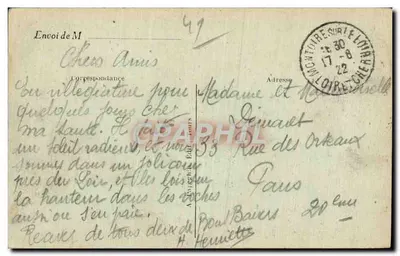 Envoi de M
49
MONTOIRE SUR LE LOIR
16 30
17 - 8
22
LOIR-ET-CHER
Chers Amis
Correspondance
Adresse
En villégiature pour
quelques jours chez
ma tante. Il fait
un soleil radieux et nous
sommes dans un joli coin
près du Loir, et
la hauteur dans les roches
aussi on s'en paie.
Recevez de tous deux de
Bons Baisers
Henriette
Madame et Mademoiselle
33 Rue des Orteaux
Paris
20eme
CPAPHIL